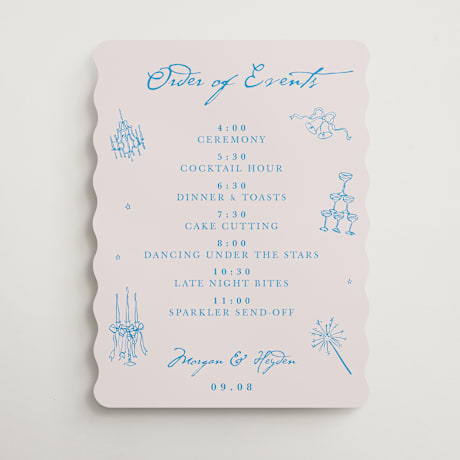 Order of Events
4:00
CEREMONY
5:30
COCKTAIL HOUR
6:30
DINNER & TOASTS
7:30
CAKE CUTTING
8:00
DANCING UNDER THE STARS
10:30
LATE NIGHT BITES
11:00
SPARKLER SEND-OFF
Morgan & Hayden
09.08